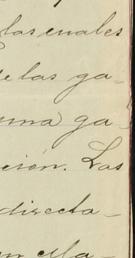 las cuales
de las ga-
una ga-
ción. Las
directa-
en ella-